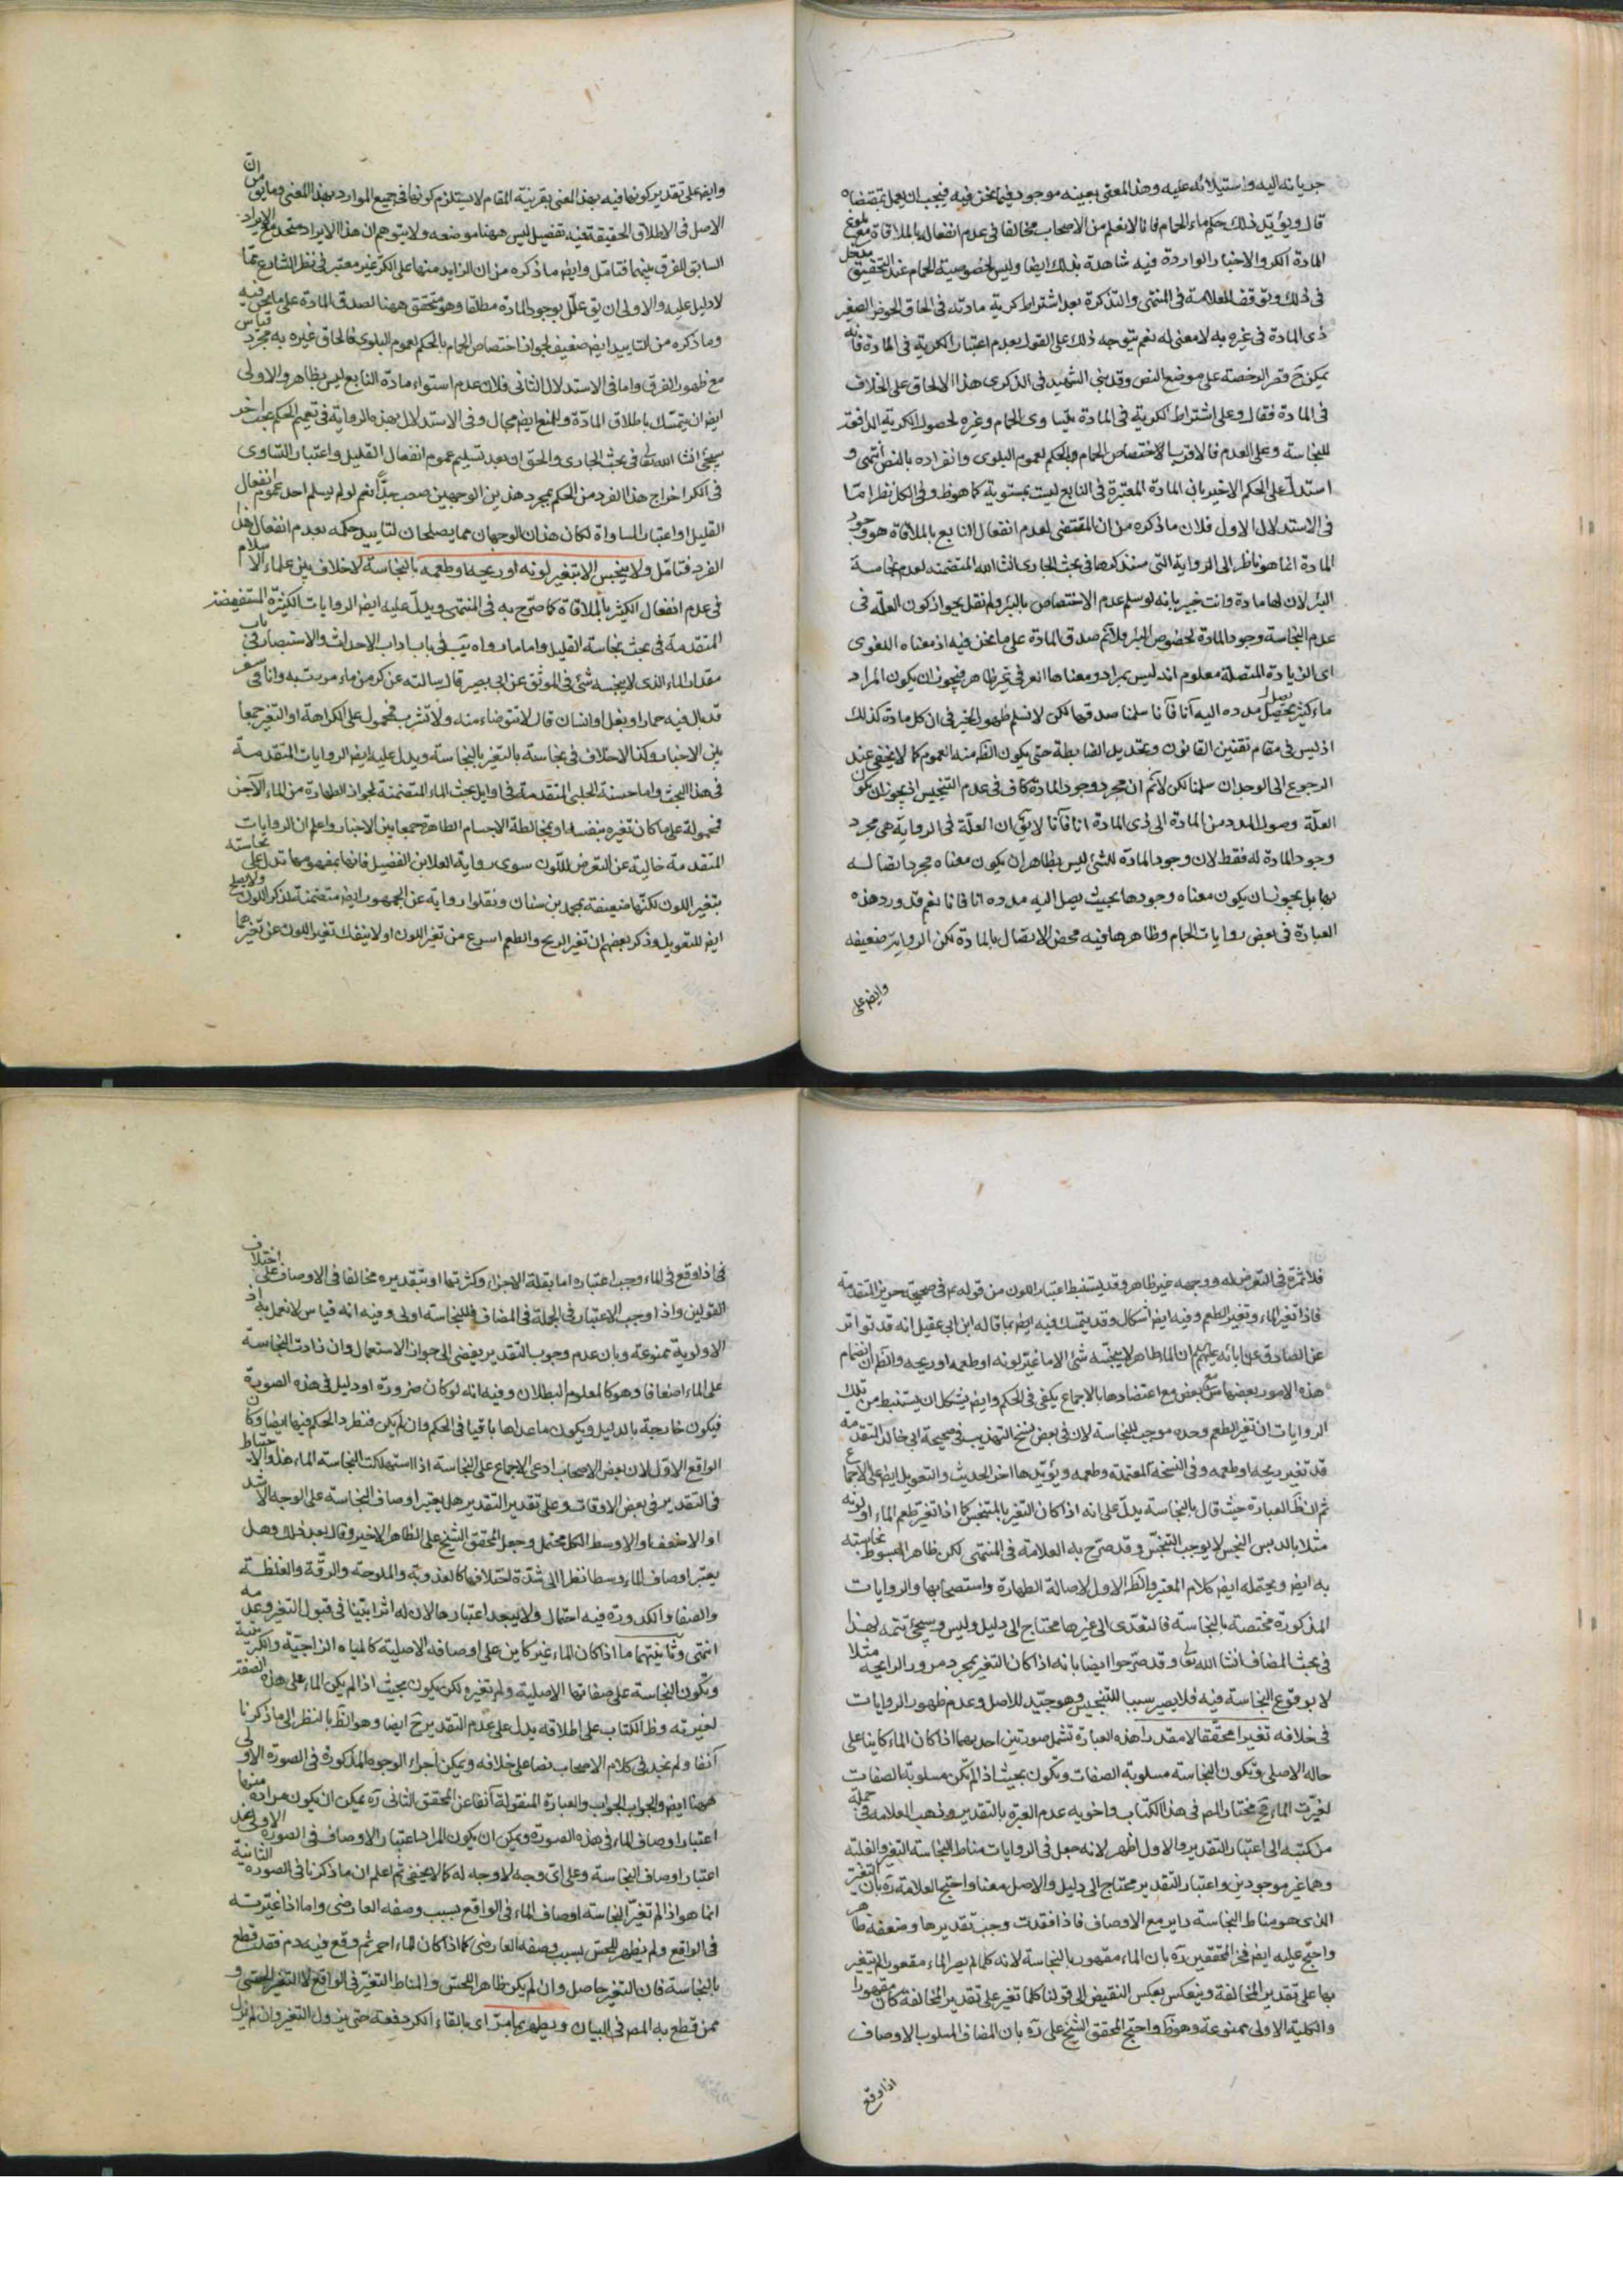 جريانه اليه واستيلائه عليه وهذا المعنى بعينه موجود فيما نحن فيه فيجب ان يعمل بمقتضاه
قال ويؤيد ذلك حكم ماء الحمام فانا لا نعلم من الاصحاب مخالفا في عدم انفعاله بالملاقاة مع بلوغ
المادة الكر والاخبار الواردة فيه شاهدة بذلك ايضا وليس لخصوصية الحمام عند التحقيق مدخل
في ذلك وتوقف العلامة في المنتهى والتذكرة بعد اشتراط كرية مادته في الحاق الحوض الصغير
ذى المادة في غيره به لا معنى له نعم يتوجه ذلك على القول بعدم اعتبار الكرية في المادة فانه
يمكن ح قصر الرخصة على موضع النص وقد بنى الشهيد في الذكرى هذا الالحاق على الخلاف
في المادة فقال وعلى اشتراط الكرية في المادة يتساوى الحمام وغيره لحصول الكرية الدافعة
للنجاسة وعلى العدم فالاقرب اختصاص الحمام بالحكم لعموم البلوى وانفراده بالنص انتهى و
استدل على الحكم الاخير بان المادة المعتبرة في النابع ليست بمستوية كما هو ظ وفي الكل نظر اما
في الاستدلال الاول فلان ما ذكره من ان المقتضى لعدم انفعال النابع بالملاقاة هو وجود
المادة انما هو ناظر الى الرواية التي سنذكرها في بحث الجارى انشا الله المتضمنه لعدم نجاسة
البئر لان لها مادة وانت خبير بانه لو سلم عدم الاختصاص بالبئر ولم نقل بجواز كون العلة في
عدم النجاسة وجود المادة لخصوص البئر فلا نم صدق المادة على ما نحن فيه اذ معناه اللغوى
اى الزيادة المتصلة معلوم انه ليس بمراد ومعناها العرفى غير ظاهر فيجوز ان يكون المراد
ماء كثير يحصل مدده اليه آنا فآنا سلمنا صدقها لكن لا نسلم ظهور الخبر في ان كل مادة كذلك
اذ ليس في مقام تقنين القانون وتمهيد الضابطة حتى يكون الظ منه العموم كما لا يخفى عند
الرجوع الى الوجدان سلمنا لكن لا نم ان مجرد وجود المادة كاف في عدم التنجيس اذ يجوز ان يكون
العلة وصول المدد من المادة الى ذى المادة انا فآنا لا يق ان العلة في الرواية هى مجرد
وجود المادة له فقط لان وجود المادة للشئ ليس بظاهر ان يكون معناه مجرد ايصاله
بها بل يجوز ان يكون معناه وجودها بحيث يصل اليه مدده انا فانا نعم قد ورد هذه
العبارة في بعض روايات الحمام وظاهرها فيه محض الاتصال بالمادة لكن الرواية ضعيفه
وايضا على
وايضا على تقدير كونها فيه بهذا المعنى بقرينة المقام لا يستلزم كونها في جميع الموارد بهذا المعنى وما يق من ان
الاصل في الاطلاق الحقيقة تفيه تفصيل ليس ههنا موضعه ولا يتوهم ان هذا الايراد متحد مع الايراد
السابق للفرق بينهما فتامل وايضا ما ذكره من ان الزايد منها على الكر غير معتبر في نظر الشارع مما
لا دليل عليه والاولى ان يق علل بوجود المادة مطلقا وهو متحقق ههنا لصدق المادة على ما نحن فيه
وما ذكره من التاييد ايضا ضعيف لجواز اختصاص الحمام بالحكم لعموم البلوى فالحاق غيره به مجرد قياس
مع ظهور الفرق واما في الاستدلال الثانى فلان عدم استواء مادة النابع ليس بظاهر والاولى
ايضا ان يتمسك باطلاق المادة وللمنع ايضا مجال وفي الاستدلال بهذه الرواية في تعميم الحكم بحث اخر
سيجئ انشا الله تعالى في بحث الجارى والحق ان بعد تسليم عموم انفعال القليل واعتبار التساوى
في الكر اخراج هذا الفرد من الحكم بمجرد هذين الوجهين صعب جدا نعم لو لم يسلم احد عموم انفعال
القليل او اعتبار المساواة لكان هذان الوجهان مما يصلحان لتاييد حكمه بعدم انفعال هذا
الفرد فتامل ولا ينجس الا بتغير لونه او ريحه او طعمه بالنجاسة لا خلاف بين علماء الاسلام
في عدم انفعال الكثير بالملاقاة كما صرح به في المنتهى ويدل عليه ايضا الروايات الكثيرة المستفيضة
المتقدمة في بحث نجاسة القليل واما ما رواه يب في باب اداب الاحداث والاستبصار في باب
مقدار الماء الذى لا ينجسه شئ في الموثق عن ابى بصير قال سالته عن كر من ماء مررت به وانا في سفر
قد بال فيه حمار او بغل او انسان قال لا تتوضاء منه ولا تشرب فمحمول على الكراهة او التغير جمعا
بين الاخبار وكذا لا خلاف في نجاسته بالتغير بالنجاسة ويدل عليه ايضا الروايات المتقدمة
في هذا البحث واما حسنة الحلبى المتقدمة في اوايل بحث الماء المتضمنة لجواز الطهارة من الماء الآجن
فمحمولة على ما كان تغيره بنفسه او بمخالطة الاجسام الطاهرة جمعا بين الاخبار واعلم ان الروايات
المتقدمة خالية عن التعرض للون سوى رواية العلا بن الفضيل فانها بمفهومها تدل على نجاسته
بتغير اللون لكنها ضعيفة بمحمد بن سنان ونقلوا رواية عن الجمهور ايضا متضمنة لذكر اللون ولا يصلح
ايضا للتعويل وذكر بعضهم ان تغير الريح والطعم اسرع من تغير اللون او لا ينفك تغير اللون عن تغيرهما
فلا ثمرة في التعرض له ووجهه غير ظاهر وقد يستنبط اعتبار اللون من قوله ع في صحيحة حريز المتقدمة
فاذا تغير الماء وتغير الطعم وفيه ايضا اشكال وقد يتمسك فيه ايضا بما قاله ابن ابى عقيل انه قد تواتر
عن الصادق عن ابائه عليهم السلام ان الماء طاهر لا ينجسه شئ الا ما غير لونه او طعمه او ريحه والظ ان انضمام
هذه الامور بعضها مع بعض مع اعتضادها بالاجماع يكفى في الحكم وايضا يشكل ان يستنبط من تلك
الروايات ان تغير الطعم وحده موجب للنجاسة لان في بعض نسخ التهذيب في صحيحة ابى خالد المتقدمة
قد تغير ريحه او طعمه وفي النسخة المعتمدة وطعمه ويؤيدها اخر الحديث والتعويل ايضا على الاجماع
ثم ان ظ العبارة حيث قال بالنجاسة يدل على انه اذا كان التغير بالمتنجس كما اذا تغير طعم الماء او لونه
مثلا بالدبس النجس لا يوجب التنجس وقد صرح به العلامة في المنتهى لكن ظاهر المبسوط نجاسته
به ايضا ويحتمله ايضا كلام المعتبر والظ الاول لاصالة الطهارة واستصحابها والروايات
المذكورة مختصة بالنجاسة فالتعدى الى غيرها محتاج الى دليل وليس وسيجئ تتمه لهذا
في بحث المضاف انشا الله تعالى وقد صرحوا ايضا بانه اذا كان التغير بمجرد مرور الرايحه مثلا
لا بوقوع النجاسة فيه فلا يصير سببا للتنجيس وهو جيد للاصل وعدم ظهور الروايات
في خلافه تغيرا محققا لا مقدرا هذه العبارة تشمل صورتين احديهما اذا كان الماء كاينا على
حاله الاصلى وتكون النجاسة مسلوبة الصفات وتكون بحيث اذا لم تكن مسلوبة الصفات
لغيرت الماء فح مختار المص في هذا الكتاب واخويه عدم العبرة بالتقدير وذهب العلامه في جملة
من كتبه الى اعتبار التقدير والاول اظهر لانه جعل في الروايات مناط النجاسة التغير والغلبة
وهما غير موجودين واعتبار التقدير محتاج الى دليل والاصل معنا واحتج العلامة ره بان التغير
الذى هو مناط النجاسة داير مع الاوصاف فاذا فقدت وجب تقديرها وضعفه ظاهر
واحتج عليه ايضا فخر المحققين ره بان الماء مقهور بالنجاسة لانه كلما لم يصر الماء مقهورا لم يتغير
بها على تقدير المخالفة وينعكس بعكس النقيض الى قولنا كلما تغير على تقدير المخالفة كان مقهورا
والكلية الاولى ممنوعة وهو ظ واحتج المحقق الشيخ على ره بان المضاف المسلوب الاوصاف
اذا وقع
في اذا وقع في الماء وجب اعتباره اما بقلة الاجزاء وكثرتها او بتقديره مخالفا في الاوصاف على اختلاف
القولين واذا وجب الاعتبار في الجملة في المضاف فللنجاسة اولى وفيه انه قياس لا نعمل به اذ
الاولوية ممنوعة وبان عدم وجوب التقدير يفضى الى جواز الاستعمال وان زادت النجاسة
على الماء اضعافا وهو كالمعلوم البطلان وفيه انه لو كان ضرورة او دليل في هذه الصورة
فيكون خارجة بالدليل ويكون ما عداها باقيا في الحكم وان لم يكن فنطرد الحكم فيها ايضا وكان
الواقع الاول لان بعض الاصحاب ادعى الاجماع على النجاسة اذا استهلكت النجاسة الماء هذا والاحتياط
في التقدير في بعض الاوقات وعلى تقدير التقدير هل يعتبر اوصاف النجاسة على الوجه الاشد
او الاخف او الاوسط الكل محتمل وجعل المحقق الشيخ على الظاهر الاخير وقال بعد ذلك وهل
يعتبر اوصاف الماء وسطا نظرا الى شدة اختلافها كالعذوبة والملوحة والرقة والغلظة
والصفا والكدورة فيه احتمال ولا يبعد اعتبارها لان له اثرا بينا في قبول التغير وعدمه
انتهى وثانيتهما ما اذا كان الماء غير كاين على اوصافه الاصلية كالمياه الزاجية والكبريتية
وتكون النجاسة على صفاتها الاصلية ولم تغيره لكن يكون بحيث اذا لم يكن الماء على هذه الصفة
لغيرته وظ الكتاب على اطلاقه يدل على عدم التقدير ح ايضا وهو الظ بالنظر الى ما ذكرنا
آنفا ولم نجد في كلام الاصحاب نصا على خلافه ويمكن اجراء الوجوه المذكورة في الصورة الاولى
ههنا ايضا والجواب الجواب والعبارة المنقولة آنفا عن المحقق الثانى ره يمكن ان يكون مراده منها
اعتبار اوصاف الماء في هذه الصورة ويمكن ان يكون المراد اعتبار الاوصاف في الصورة الاولى عند
اعتبار اوصاف النجاسة وعلى اى وجه لا وجه له كما لا يخفى ثم اعلم ان ما ذكرنا في الصورة الثانية
انما هو اذا لم تغير النجاسة اوصاف الماء في الواقع بسبب وصفه العارضى واما اذا غيرته
في الواقع ولم يظهر للحس بسبب وصفه العارضى كما اذا كان الماء احمر ثم وقع فيه دم فقد قطع
بالنجاسة فان التغير حاصل وان لم يكن ظاهرا للحس والمناط التغير في الواقع لا التغير الحسى و
ممن قطع به المص في البيان ويطهر بما مر اى بالقاء الكر دفعة حتى يزول التغير وان لم يزل